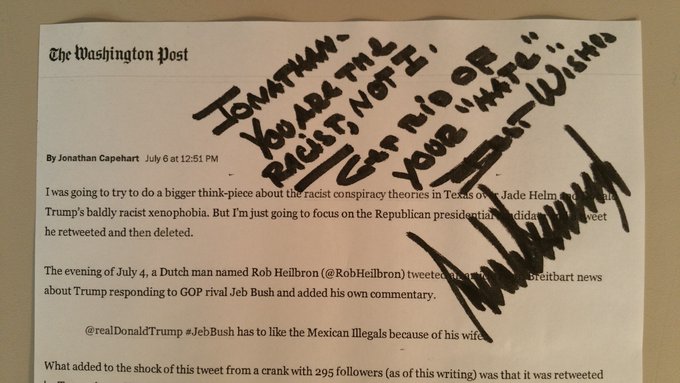 The Washington Post
JONATHAN-
YOU ARE THE
RACIST, NOT I.
GET RID OF
YOUR "HATE".
BEST WISHES
By Jonathan Capehart July 6 at 12:51 PM
I was going to try to do a bigger think-piece about the racist conspiracy theories in Texas over Jade Helm and Donald
Trump's baldly racist xenophobia. But I'm just going to focus on the Republican presidential candidate tweet
he retweeted and then deleted.
The evening of July 4, a Dutch man named Rob Heilbron (@RobHeilbron) tweeted Breitbart news
about Trump responding to GOP rival Jeb Bush and added his own commentary.
@realDonaldTrump #JebBush has to like the Mexican Illegals because of his wife
What added to the shock of this tweet from a crank with 295 followers (as of this writing) was that it was retweeted